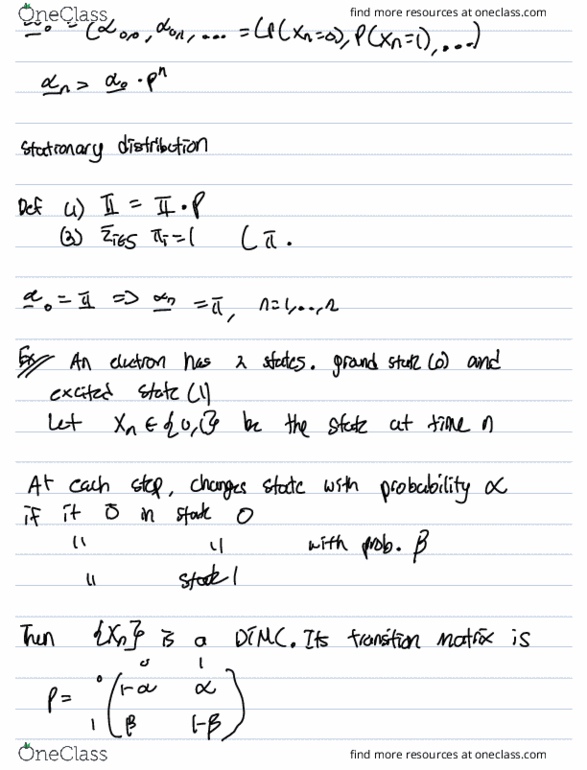 OneClass find more resources at oneclass.com
α₀ = (α₀,₀, α₀,₁, ... = (P(Xn=0), P(Xn=1), ...)
αn = α₀ · Pⁿ
stationary distribution
Def (1) π = π · P
(2) Σi∈S πi = 1 ( π .
α₀ = π => αn = π, n=1,...,n
Ex An electron has 2 states. ground state (0) and
excited state (1)
Let Xn ∈ {0,1} be the state at time n
At each step, changes state with probability α
if it is in state 0
" " with prob. β
" state 1
Then {Xn} is a DTMC. Its transition matrix is
0 1
P = 0 ( 1-α α
1 β 1-β )
OneClass find more resources at oneclass.com